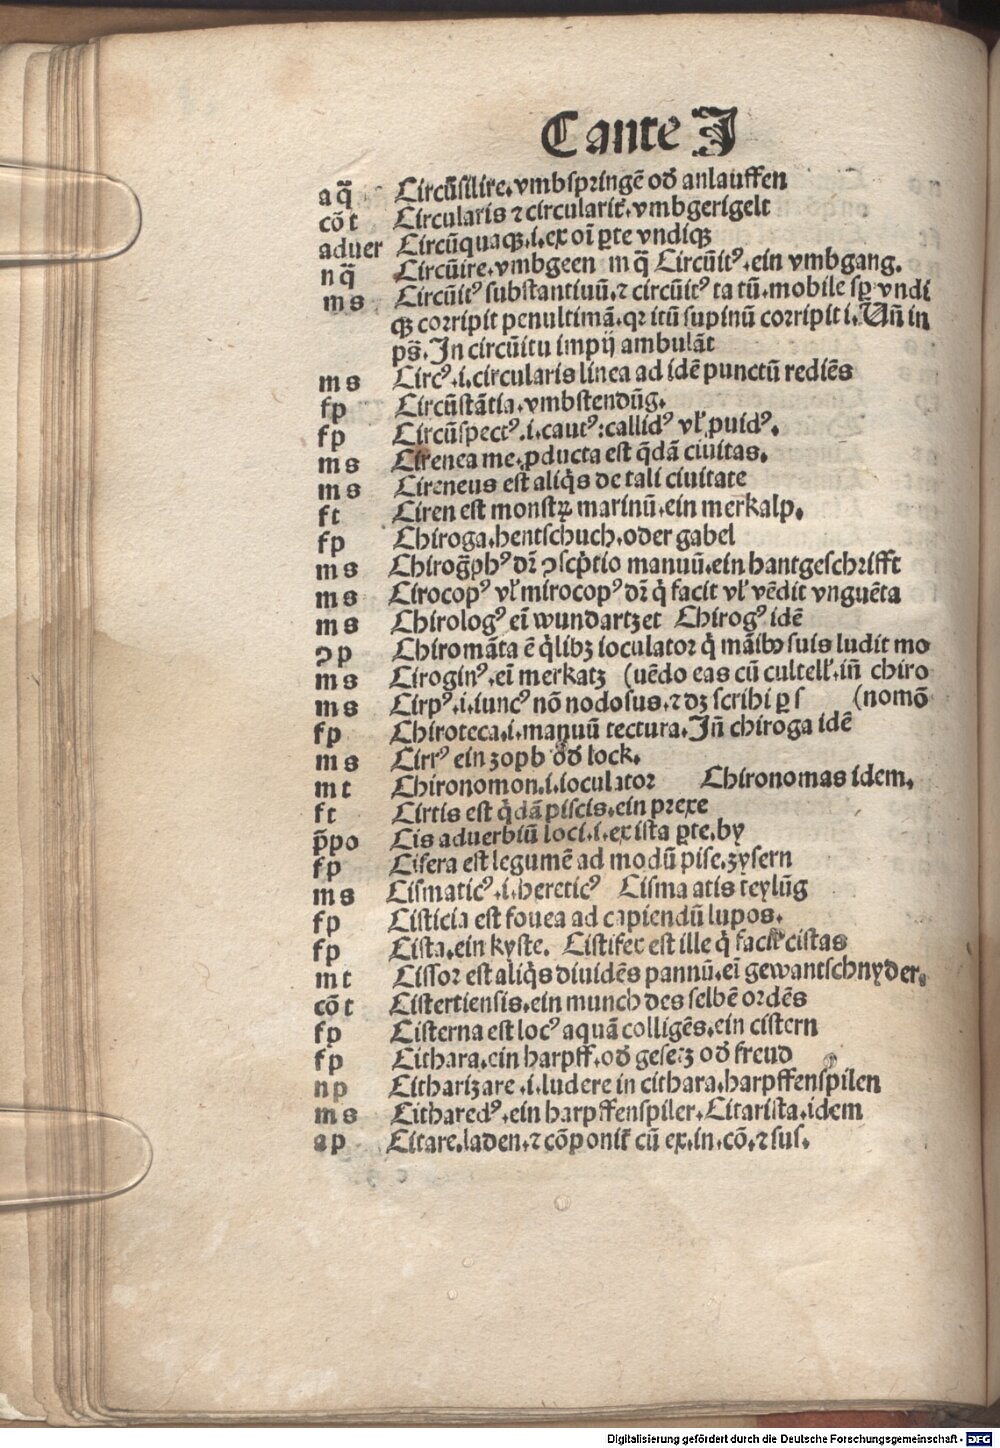 C ante J
a q̄ Circūsilire.vmbspringē oď anlauffen
cō t Circularis ⁊ circularit̕.vmbgerigelt
aduer Circūquaqꝫ.i.ex oī ꝑte vndiqꝫ
n q̄ Circūire.vmbgeen m q̄ Circūitꝰ.ein vmbgang.
m s Circūitꝰ substantiuū.⁊ circūitꝰ ta tū.mobile sꝑ vndi
qꝫ corripit penultimā.qr itū supinū corripit i.Vn̄ in
ps̄.In circūitu impij ambulāt
m s Circꝰ.i.circularis linea ad idē punctū rediēs
f p Circūstātia.vmbstendūg.
f p Circūspectꝰ.i.cautꝰ:callidꝰ vl̕ ꝓuidꝰ.
m s Cirenea me.ꝓducta est q̄dā ciuitas.
m s Cireneus est aliq̇s de tali ciuitate
f t Ciren est monstrꝝ marinū.ein merkalp.
f p Chiroga.hentschuch.oder gabel
m s Chirog̃phꝰ dr̄ ↄscp̄tio manuū.ein hantgeschrifft
m s Cirocopꝰ vl̕ mirocopꝰ dr̄ q̇ facit vl̕ vēdit vnguēta
m s Chirologꝰ eī wundartzet Chirogꝰ idē
ↄ p Chiromāta ē q̇libꝫ ioculator q̇ māibꝰ suis ludit mo
m s Ciroginꝰ.eī merkatz (uēdo eas cū cultell̕.in̄ chiro
m s Cirpꝰ.i.iuncꝰ nō nodosus.⁊ dꝫ scribi ꝑ s (nomō
f p Chiroteca.i.manuū tectura.Jn̄ chiroga idē
m s Cirrꝰ ein zoph oď lock.
m t Chironomon.i.ioculator Chironomas idem.
f t Cirtis est q̄dā piscis.ein prexe
p̄po Cis aduerbiū loci.i.ex ista ꝑte.by
f p Cisera est legumē ad modū pise.zysern
m s Cismaticꝰ.i.hereticꝰ Cisma atis teylūg
f p Cisticia est fouea ad capiendū lupos.
f p Cista.ein kyste. Cistifex est ille q̇ facit cistas
m t Cissor est aliq̇s diuidēs pannū.eī gewantschnyder.
cō t Cistertiensis.ein munch des selbē ordēs
f p Cisterna est locꝰ aquā colligēs.ein cistern
f p Cithara.ein harpff.oď gesetz oď freud
n p Citharizare.i.ludere in cithara.harpffenspilen
m s Citharedꝰ.ein harpffenspiler.Citarista.idem
a p Citare.laden.⁊ cōponit̕ cū ex.in.cō.⁊ sus.
Digitalisierung gefördert durch die Deutsche Forschungsgemeinschaft - DFG